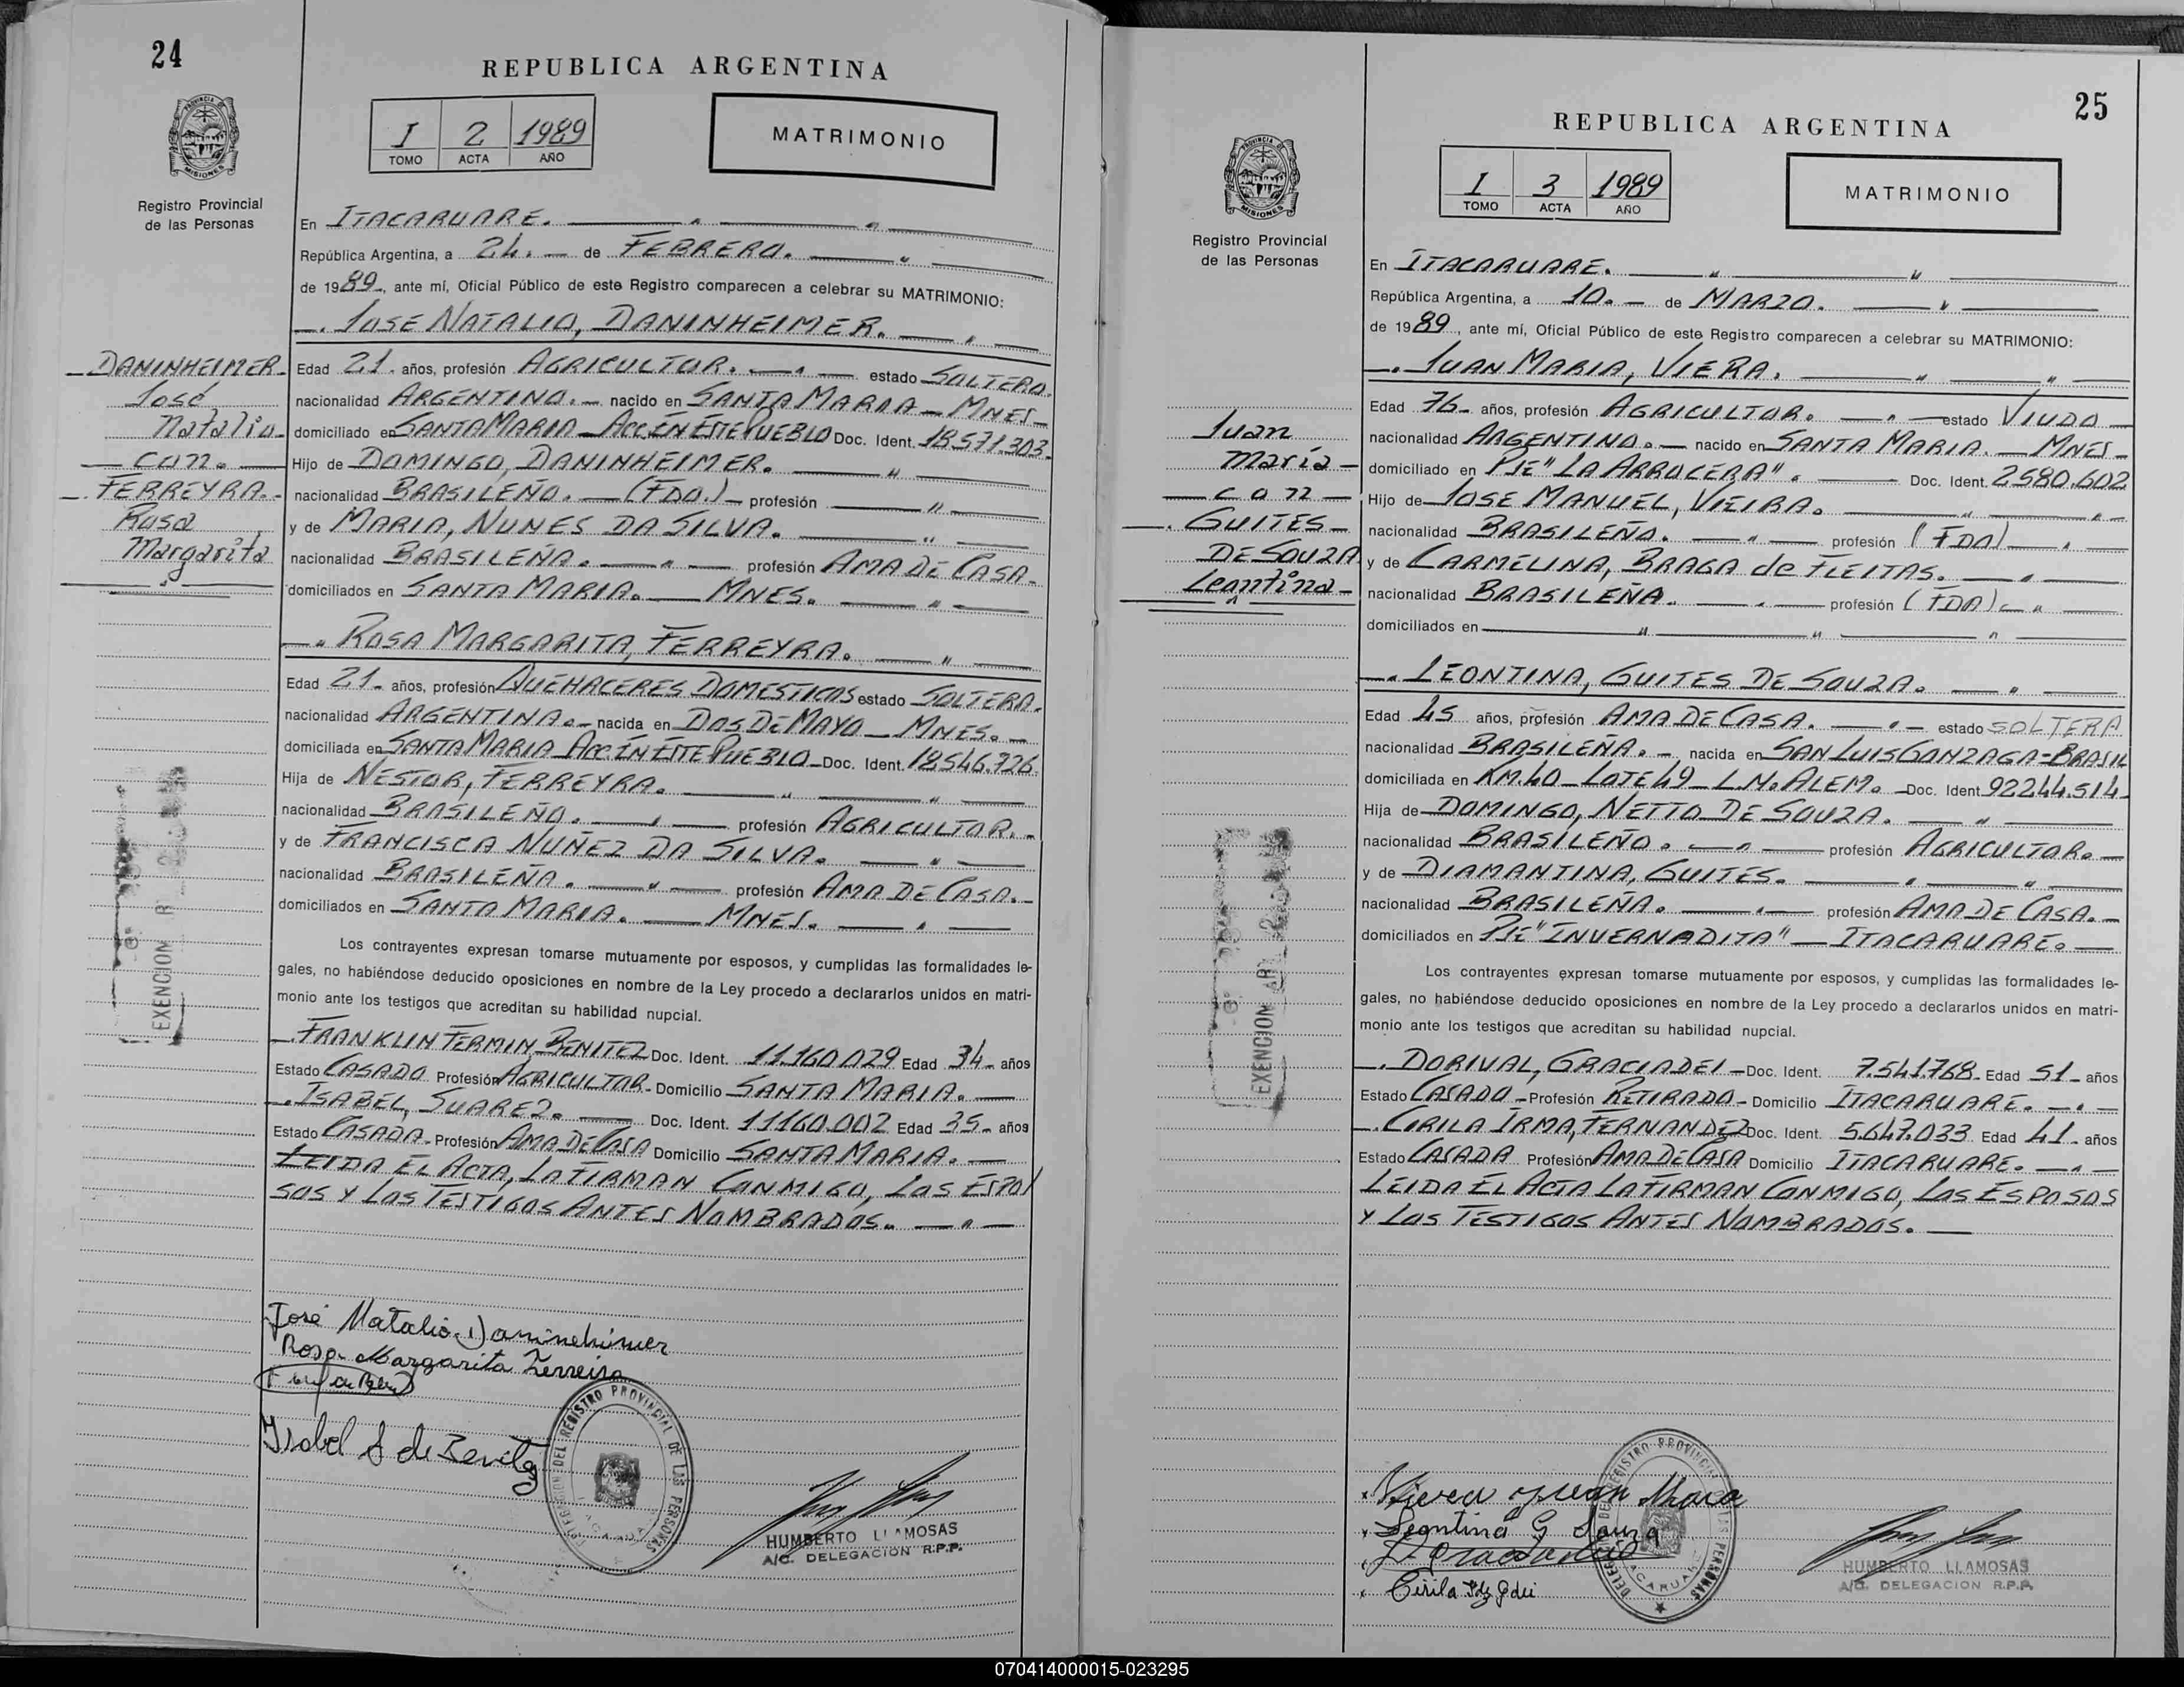 24
REPUBLICA ARGENTINA
I 2 1989
TOMO ACTA AÑO
MATRIMONIO
PROVINCIA DE MISIONES
Registro Provincial
de las Personas
En ITACARUARE.
República Argentina, a 24. de FEBRERO.
de 1989, ante mí, Oficial Público de este Registro comparecen a celebrar su MATRIMONIO:
JOSE NATALIO, DANINHEIMER.
DANINHEIMER
José
Natalio
con
FERREYRA.
Rosa
Margarita
Edad 21. años, profesión AGRICULTOR. estado SOLTERO.
nacionalidad ARGENTINO. nacido en SANTA MARIA - MNES
domiciliado en SANTA MARIA - ACC. EN ESTE PUEBLO Doc. Ident. 18.571.303.
Hijo de DOMINGO, DANINHEIMER.
nacionalidad BRASILEÑO. (FDO.) profesión
y de MARIA, NUNES DA SILVA.
nacionalidad BRASILEÑA. profesión AMA DE CASA.
domiciliados en SANTA MARIA. MNES.
ROSA MARGARITA, FERREYRA.
Edad 21. años, profesión QUEHACERES DOMESTICOS estado SOLTERA.
nacionalidad ARGENTINA. nacida en DOS DE MAYO - MNES.
domiciliada en SANTA MARIA ACC. EN ESTE PUEBLO Doc. Ident. 18.546.726.
Hija de NESTOR, FERREYRA.
nacionalidad BRASILEÑO. profesión AGRICULTOR.
y de FRANCISCA NUÑEZ DA SILVA.
nacionalidad BRASILEÑA. profesión AMA DE CASA.
domiciliados en SANTA MARIA. MNES.
EXENCION
Los contrayentes expresan tomarse mutuamente por esposos, y cumplidas las formalidades le-
gales, no habiéndose deducido oposiciones en nombre de la Ley procedo a declararlos unidos en matri-
monio ante los testigos que acreditan su habilidad nupcial.
FRANKLIN FERMIN BENITEZ Doc. Ident. 11.160.029 Edad 34 años
Estado CASADO Profesión AGRICULTOR Domicilio SANTA MARIA.
ISABEL, SUAREZ. Doc. Ident. 11160.002 Edad 35 años
Estado CASADA Profesión AMA DE CASA Domicilio SANTA MARIA.
LEIDA EL ACTA, LA FIRMAN CONMIGO, LOS ESPO/
SOS Y LOS TESTIGOS ANTES NOMBRADOS.
José Natalio Daninehimer
Rosa Margarita Ferreira
Isabel S de Benitez
DEL REGISTRO PROVINCIAL DE LAS PERSONAS
HUMBERTO LLAMOSAS
A/C. DELEGACION R.P.P.
25
REPUBLICA ARGENTINA
I 3 1989
TOMO ACTA AÑO
MATRIMONIO
PROVINCIA DE MISIONES
Registro Provincial
de las Personas
En ITACARUARE.
República Argentina, a 10. de MARZO.
de 1989, ante mí, Oficial Público de este Registro comparecen a celebrar su MATRIMONIO:
JUAN MARIA, VIERA.
Juan
María
con
GUITES
DE SOUZA
Leontina
Edad 76 años, profesión AGRICULTOR. estado VIUDO
nacionalidad ARGENTINO. nacido en SANTA MARIA. MNES
domiciliado en PJE "LA ARROCERA". Doc. Ident. 2580.602
Hijo de JOSE MANUEL, VIEIRA.
nacionalidad BRASILEÑO. profesión (FDO)
y de CARMELINA, BRAGA de FLEITAS.
nacionalidad BRASILEÑA. profesión (FDA)
domiciliados en
LEONTINA, GUITES DE SOUZA.
Edad 45 años, profesión AMA DE CASA. estado SOLTERA
nacionalidad BRASILEÑA. nacida en SAN LUIS GONZAGA=BRASIL
domiciliada en KM.40 - LOTE 49 - L.N. ALEM. Doc. Ident 92244.514
Hija de DOMINGO, NETTO DE SOUZA.
nacionalidad BRASILEÑO. profesión AGRICULTOR.
y de DIAMANTINA, GUITES.
nacionalidad BRASILEÑA. profesión AMA DE CASA.
domiciliados en PJE "INVERNADITA" - ITACARUARE.
EXENCION
Los contrayentes expresan tomarse mutuamente por esposos, y cumplidas las formalidades le-
gales, no habiéndose deducido oposiciones en nombre de la Ley procedo a declararlos unidos en matri-
monio ante los testigos que acreditan su habilidad nupcial.
DORIVAL, GRACIADEI Doc. Ident. 7.541768 Edad 51 años
Estado CASADO Profesión RETIRADO Domicilio ITACARUARE.
CIRILA IRMA, FERNANDEZ Doc. Ident. 5.647.033 Edad 41 años
Estado CASADA Profesión AMA DE CASA Domicilio ITACARUARE.
LEIDA EL ACTA LA FIRMAN CONMIGO, LOS ESPOSOS
Y LOS TESTIGOS ANTES NOMBRADOS.
Viera Juan Maria
Leontina G Souza
Cirila
HUMBERTO LLAMOSAS
A/C. DELEGACION R.P.P.
070414000015-023295